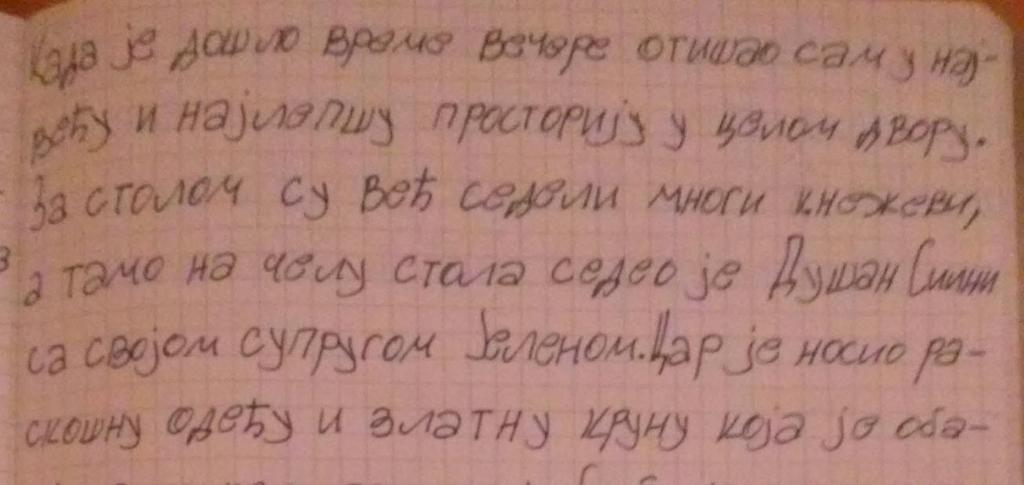 Када је дошло време вечере отишао сам у нај-
већу и најлепшу просторију у целом двору.
За столом су већ седели многи кнежеви,
а тамо на челу стола седео је Душан Силни
са својом супругом Јеленом. Цар је носио ра-
скошну одећу и златну круну која је оба-